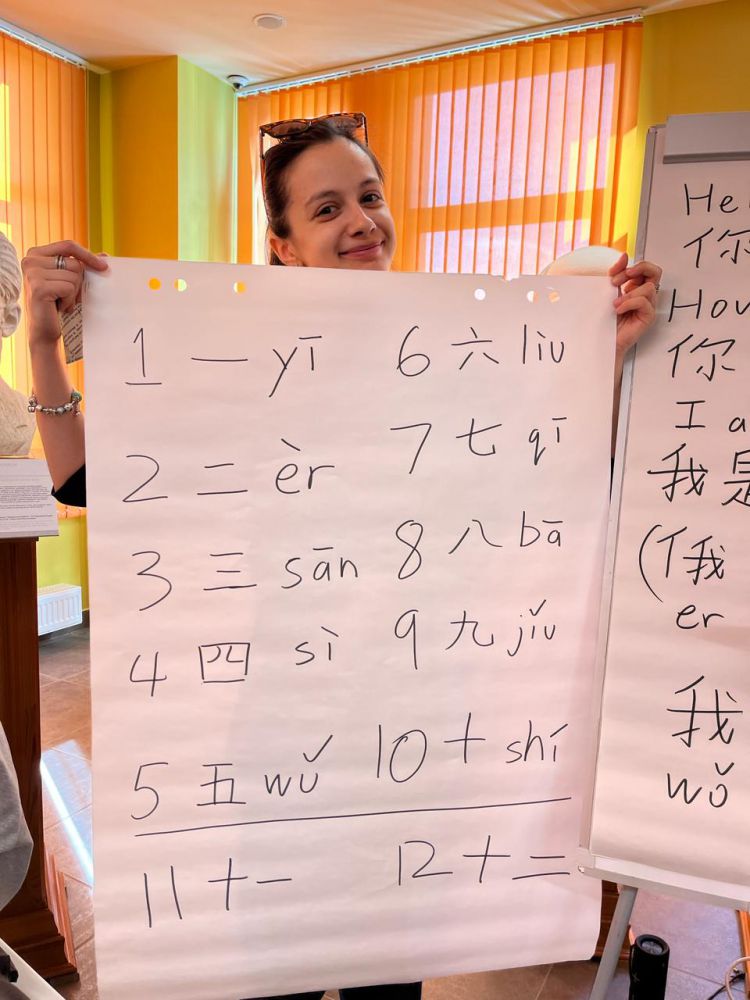 1 一 yī 6 六 liù
2 二 èr 7 七 qī
3 三 sān 8 八 bā
4 四 sì 9 九 jiǔ
5 五 wǔ 10 十 shí
11 十一 12 十二
你
你
I
我 是
er
我
wǒ